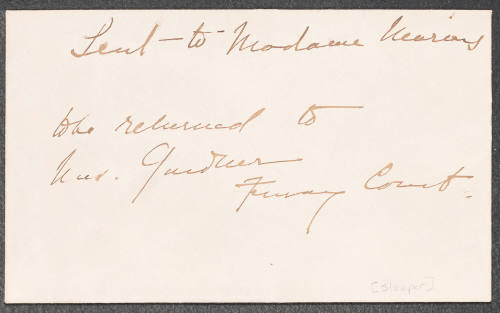 Lent - to Madame
to be returned to
Mrs. Gardner
Fenway Court.
[Sleeper]